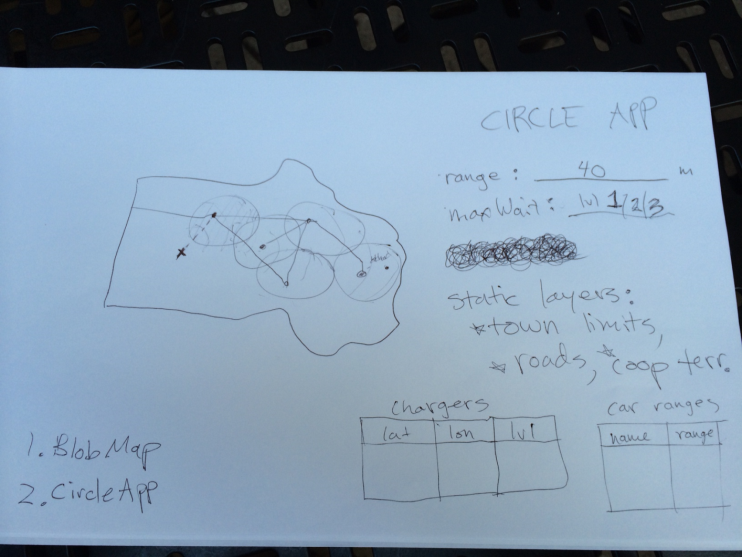 CIRCLE APP
range: 40 m
maxWait: lvl 1/2/3
static layers:
*town limits,
*roads, *coop terr.
chargers
lat lon lvl
car ranges
name range
1. BlobMap
2. CircleApp